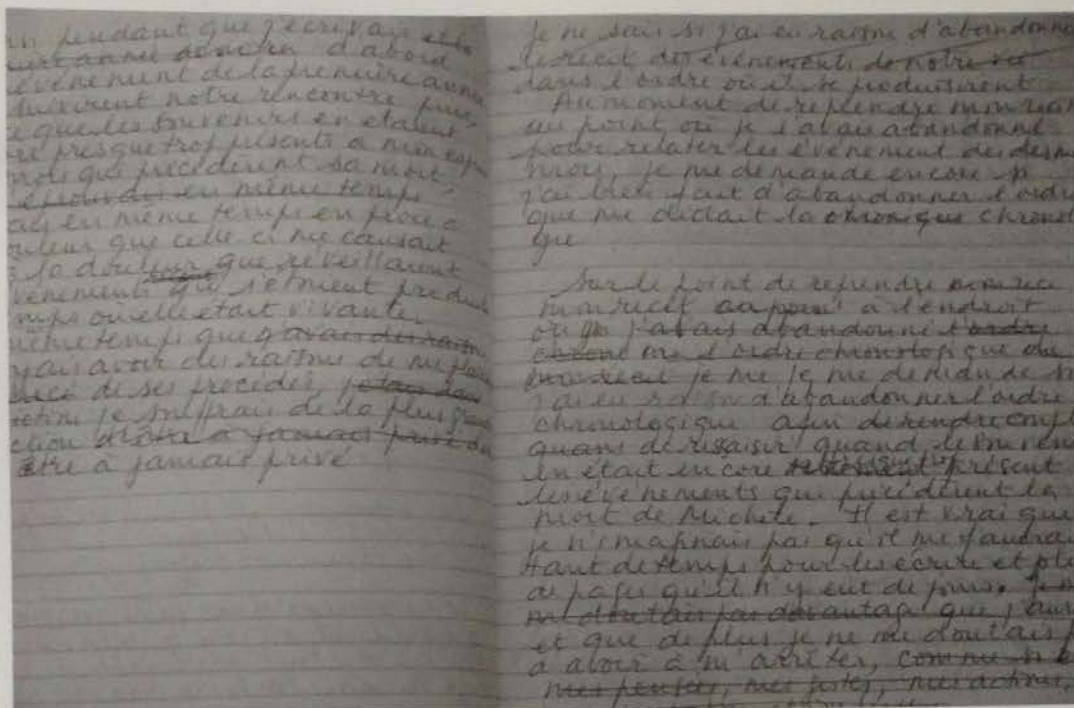 pendant que j'écrivais
d'abord
événement de la première année
duisirent notre rencontre puis,
que les souvenirs en étaient
presque trop présents à mon esp
mois qui précédèrent sa mort,
en même temps
en même temps en proie à
ouleur que celle ci me causait
à la douleur que réveillaient
vénements qui s'étaient produit
mps ou elle était vivante
même temps que j'avais des raisons
avoir des raisons de me
de ses procédés, j'étais dans
je souffrais de la plus grande
ction d'être à jamais privé de
être à jamais privé
je ne sais si j'ai eu raison d'abandonne
le récit des événements de notre vie
dans l'ordre où il se produisirent
Au moment de reprendre mon récit
au point, où je l'avais abandonné
pour relater les événement des dern
mois, je me demande encore si
j'ai bien fait d'abandonner l'ordre
que me dictait la chronique chronol
que
Sur le point de reprendre mon récit
mon récit au point à l'endroit
où j'avais abandonné l'ordre
chrono me l'ordre chronologique du
je me je me demande si
j'ai eu raison d'abandonner l'ordre
chronologique afin de rendre compt
quand de ressaisir quand le souvenir
en était encore présent
les événements qui précédèrent la
mort de Michèle. Il est vrai que
je n'imaginais pas qu'il me faudrai
tant de temps pour les écrire et plu
de pages qu'il n'y eut de jours. je n
me doutais pas davantage que j'aur
et que de plus je ne me doutais p
à avoir à m'arrêter, comme si
mes pensées, mes gestes, mes actions,